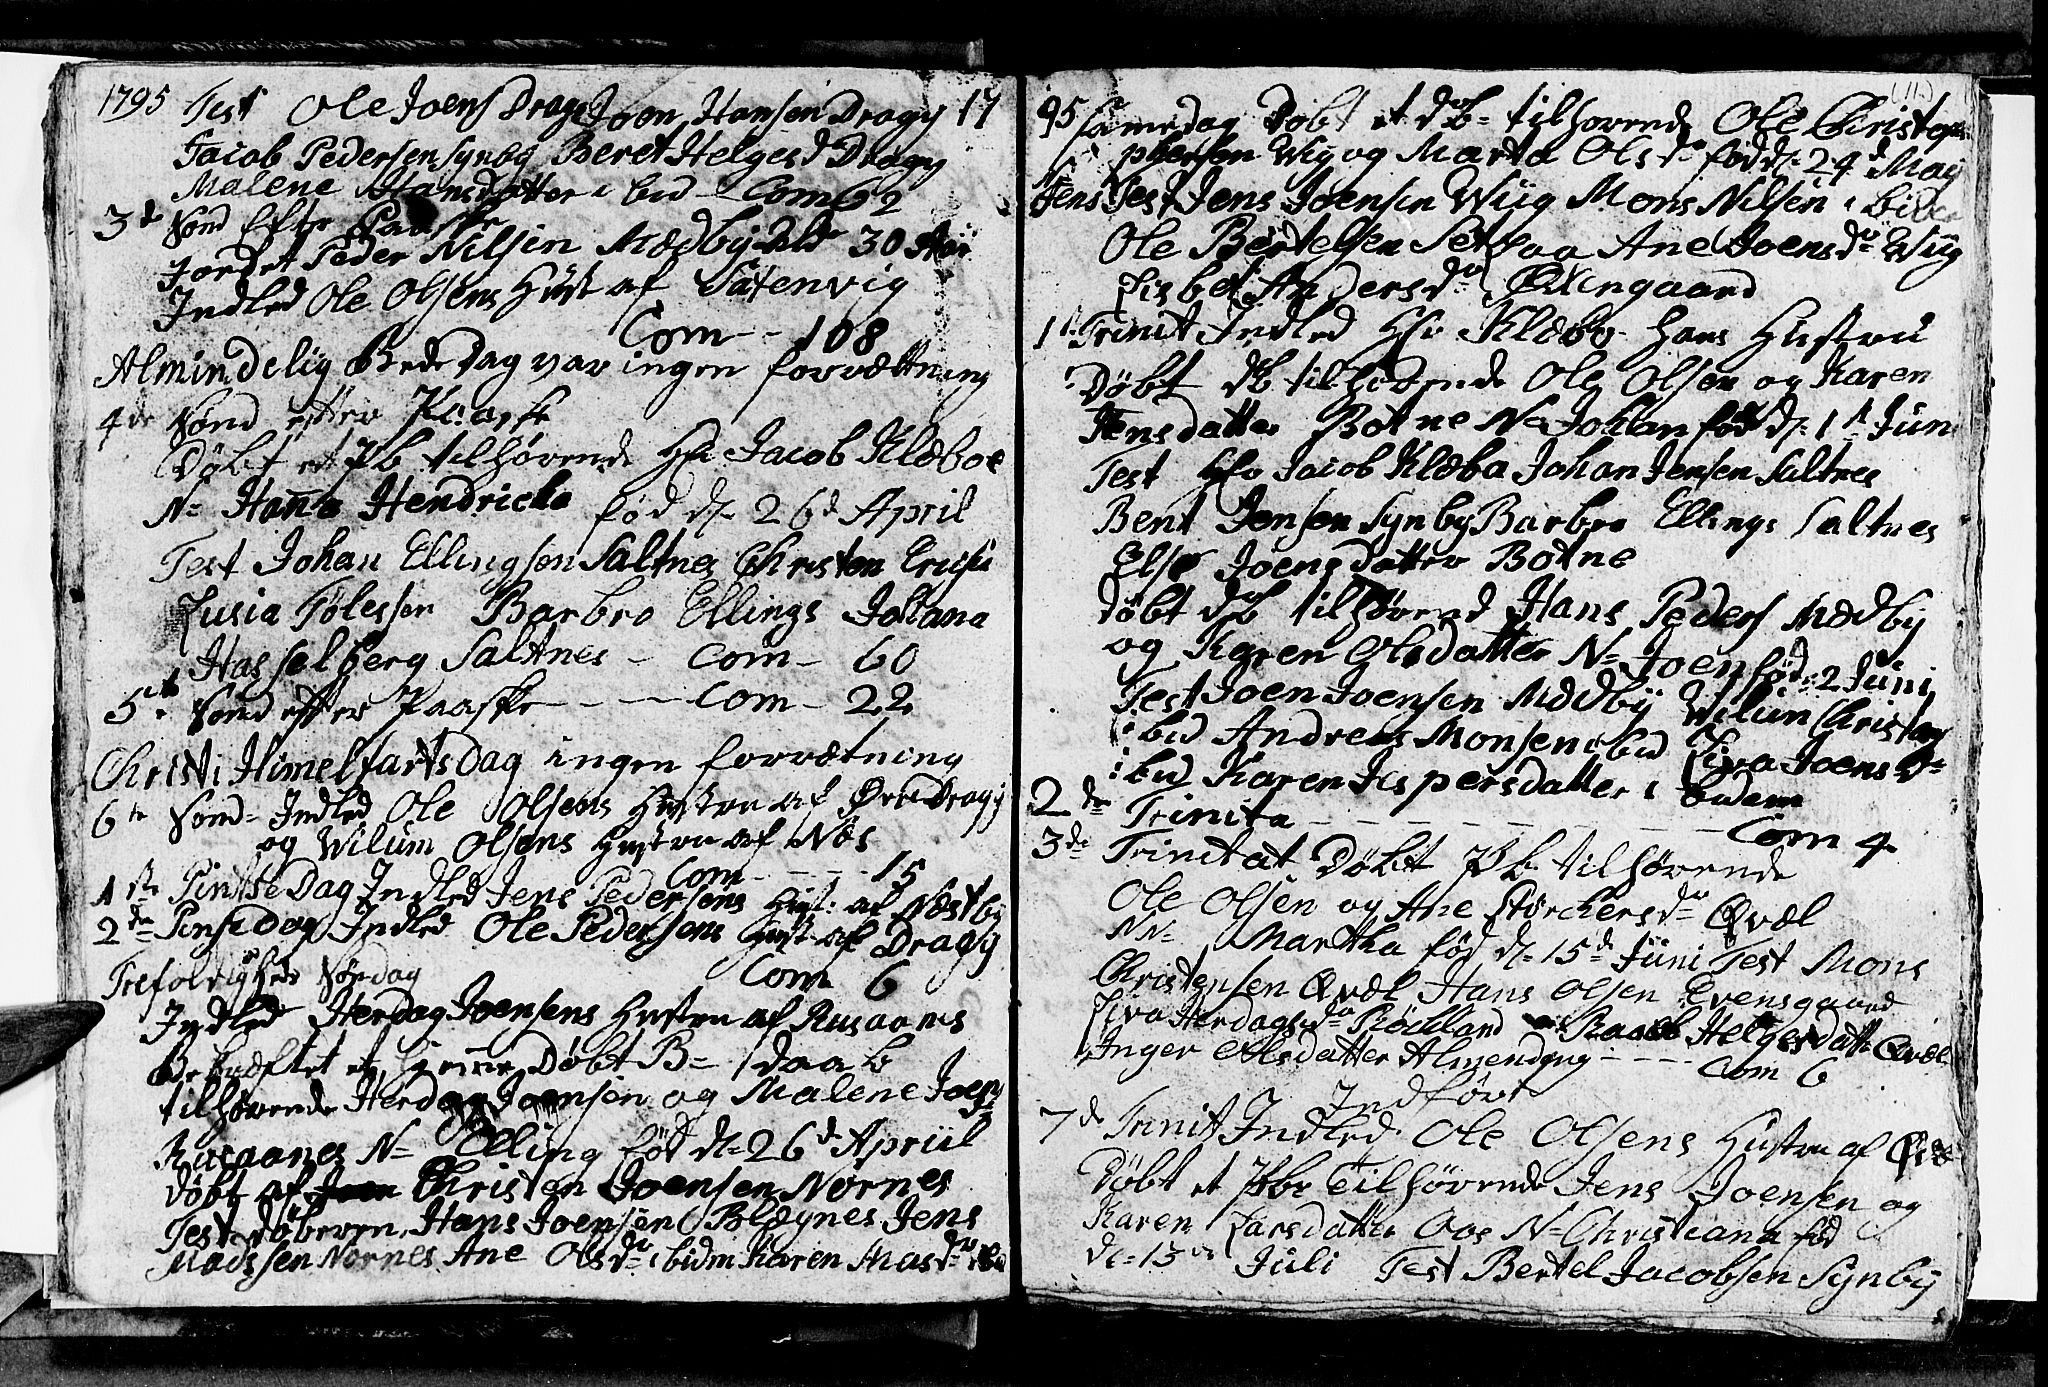 1795 Test Ole Joens Dragy Joen Hansen Dragy 17
Jacob Pedersen Synby Beret Helgesd Dragy
Malene Hansdatter i bid Com 62
3de Sond Efter Paaske
Jordet Peder Nilsen Mædby Old 30 Aar
Indled Ole Olsens Hust af Sætenvig
Com - - 108
Almindelig Bededag var ingen forrættning
4de Sond efter Paaske
Døbt et Pb tilhørende Hr Jacob Klæboe
N= Hanna Hendricka fød d= 26d April
Test Johan Ellingsen Saltnes Christen Erichs
Lusia Tølessen Barbro Ellings Johana
Hasselberg Saltnes - Com - 60
5te Sond efter Paaske - - - Com - 22
Christi Himelfartsdag ingen forrætning
6te Sond= Indled Ole Olsens Hustru af Øvre Dragy
og Wilum Olsens Hustru af Næs
Com - - - - 15
1ste Pintse Dag Indled Jens Pedersens Hust: af Næstby
2den Pinsedag Indled Ole Pedersens Hust af Dragy
Trefoldigheds Søndag Com 6
Indled Herdag Joensens Hustru af Rusaanes
Bekræftet et hjemme Døbt B= Daab
tilhørende Herdag Joensen og Malene Joens
Rusaanes N= Elling fød d= 26d Apriil
døbt af Joen Christen Joensen Nornes
Test døberen, Hans Joensen Blægnes Jens
Madssen Nornes Ane Olsd= ibidm Karen Masd= ibid
95 Samedag Døbt et db= tilhørende Ole Christop
phersen Wig og Marta Olsd= fød d= 24d May
N= Jens Test Jens Joensen Wiig Mons Nilsen i bidem
Ole Bertelsen Setsaa Ane Joensd= Wiig
Lisbet Andersd= Øxengaard
1st Trinit Indled Hr Klæbo hans Hustru
Døbt db tilhørende Ole Olsen og Karen
Jensdatter Botne N= Johan fød d= 1st Juni
Test Hr Jacob Klæbo Johan Jensen Saltnes
Bent Jensen Synby Barbro Ellings Saltnes
Else Joensdatter Botne
Døbt db tilhørend Hans Peders Mædby
og Karen Olsdatter N= Joen fød= 2 Juni
Test Joen Joensen Mædby Wilum Christens
i bid Andreas Monsen ibid Liva Joensd=
i bid Karen Jespersdatter i bidem
2de Trinita - - - - - - - Com 4
3de Trinitat Døbt Pb tilhørende
Ole Olsen og Ane Størchersd= Qvæl
N= Martha fød d= 15d Juni Test Mons
Christensen Qvæl Hans Olsen Evensgaard
Liva Herdagsd= Røckland Helgesdatt Qvæl
Inger Olsdatter Almendgng - - - Com 6
Indført
7d Trinit Indled Ole Olsens Hustru af
Døbt et Pbr Tilhørende Jens Joensen og
Karen Larsdatter Oos N= Christiana fød
d= 13de Juli Test Bertel Jacobsen Synby